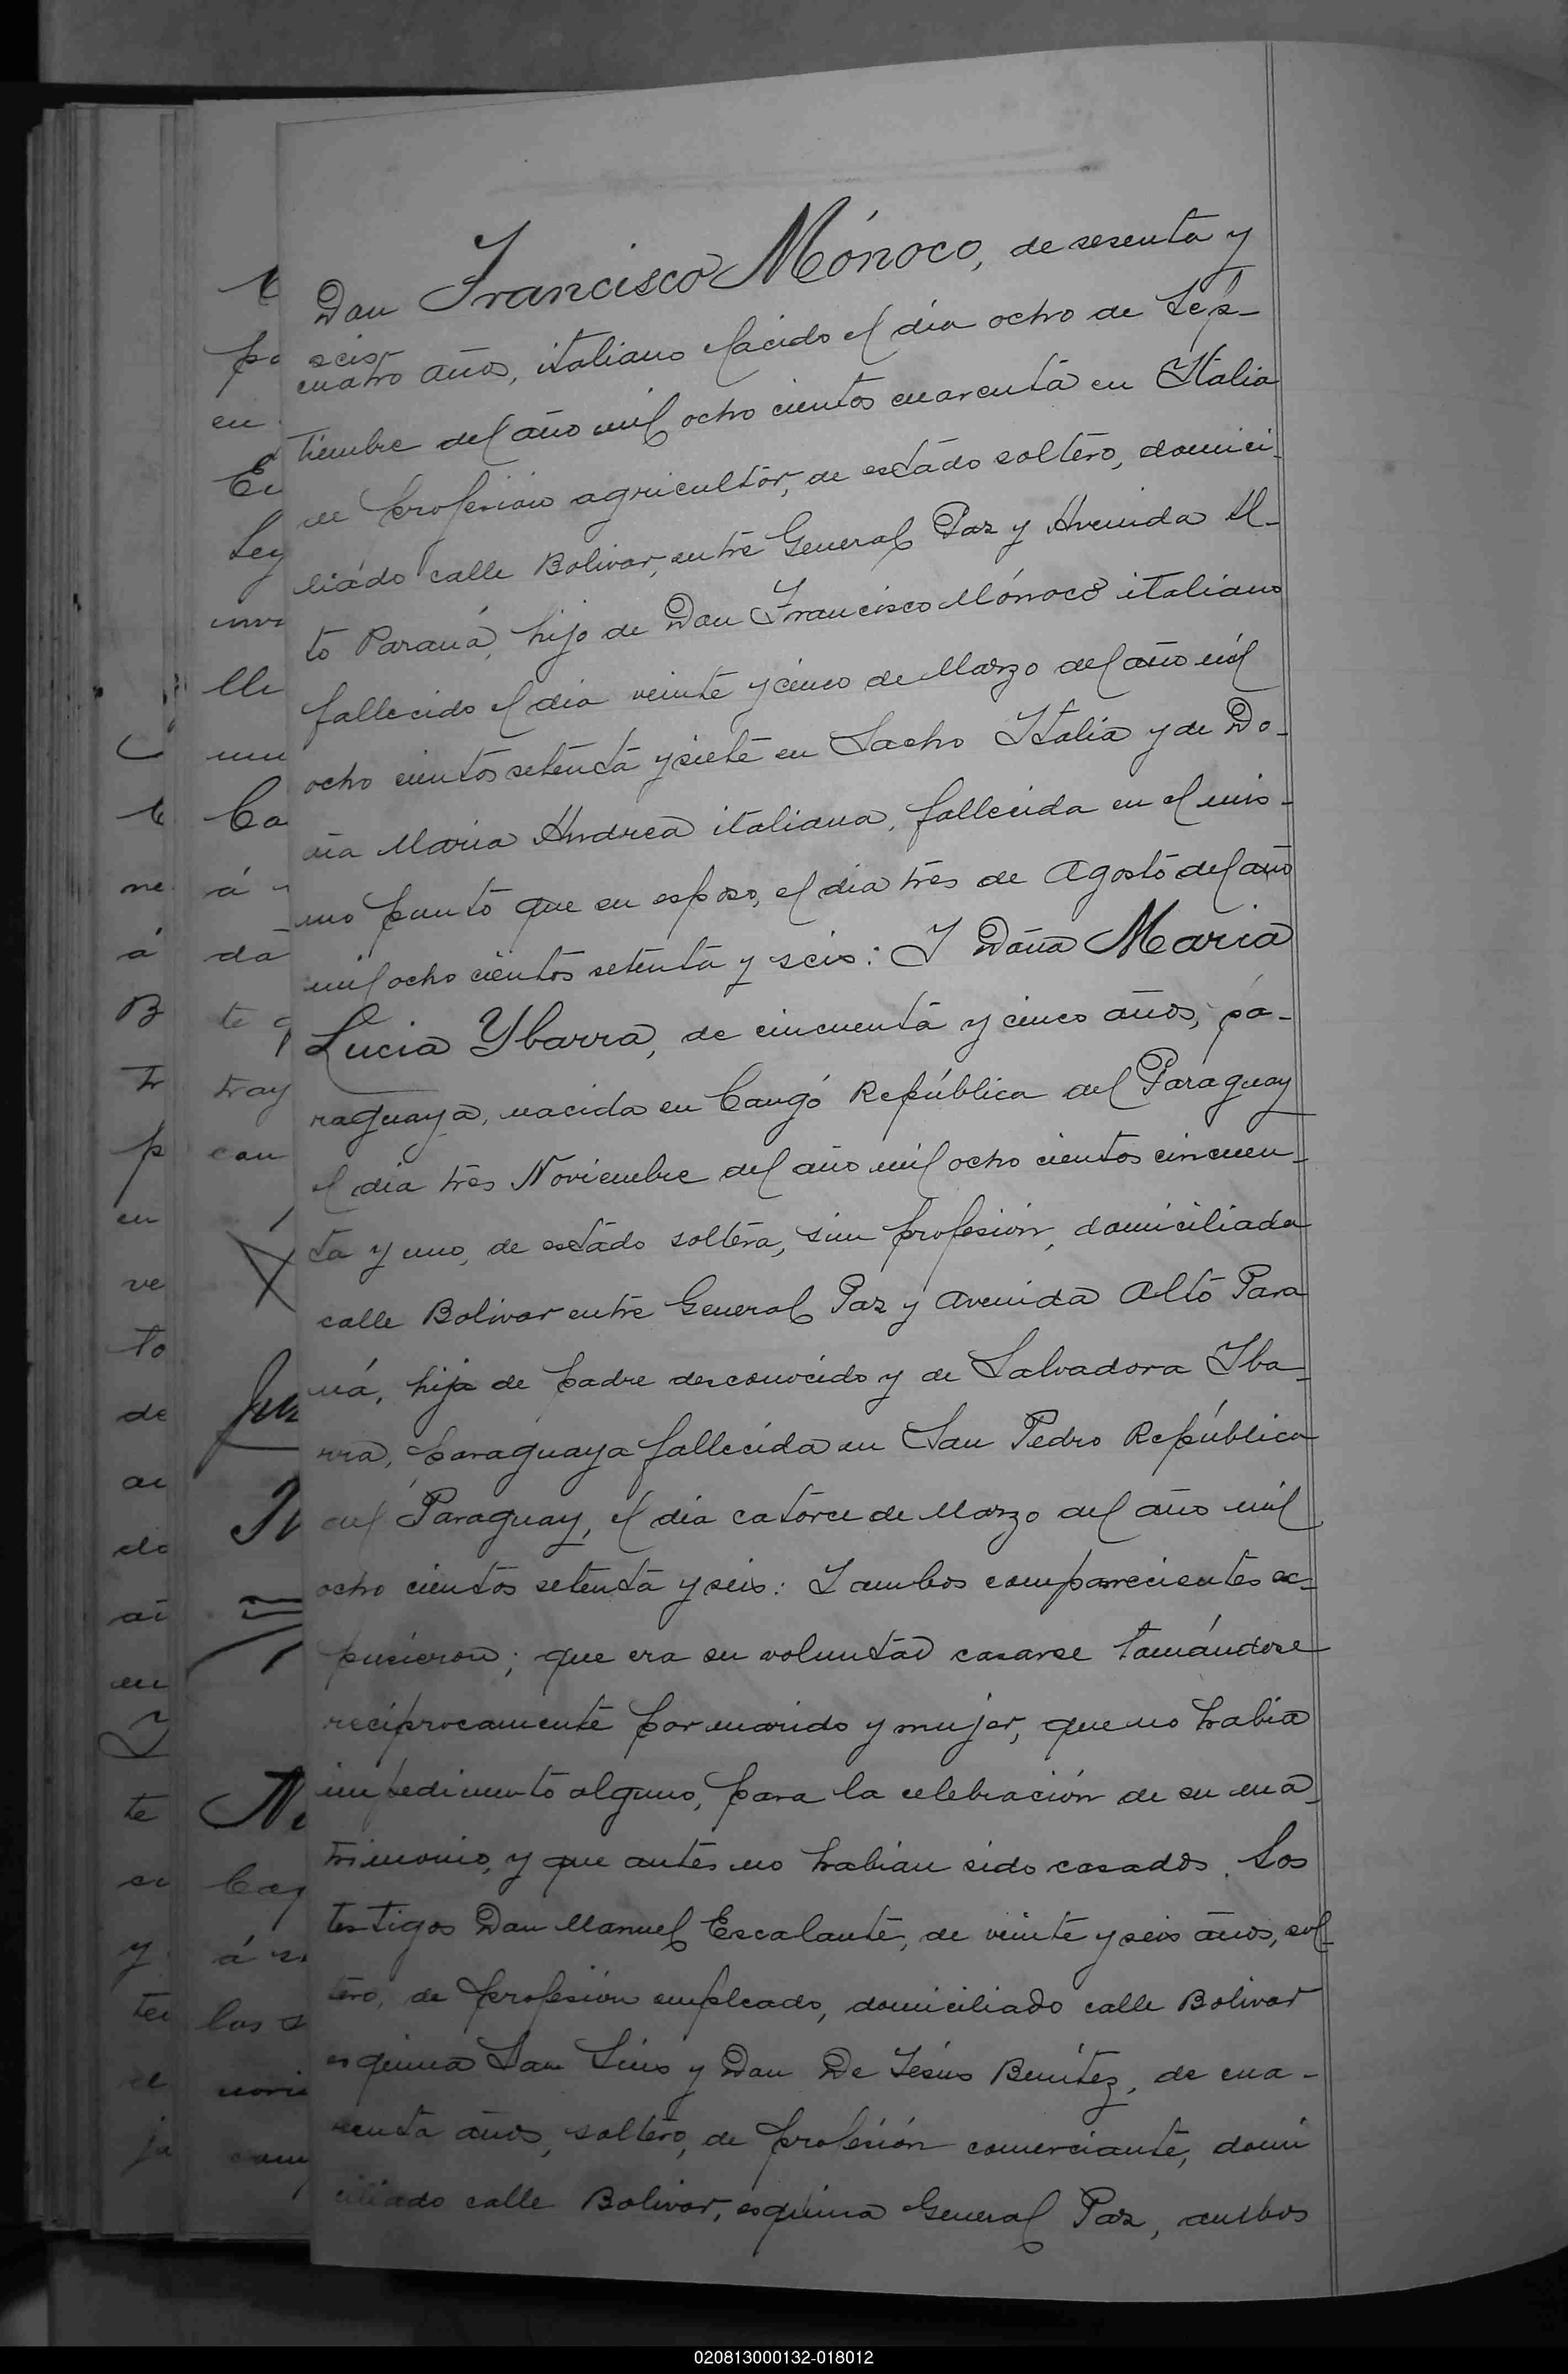 Don Francisco Mónoco, de sesenta y
seis
cuatro años, italiano nacido el dia ocho de Sep-
tiembre del año mil ocho cientos cuarenta en Italia
de profesion agricultor, de estado soltero, domici-
liado calle Bolivar, entre General Paz y Avenida Al-
to Paraná, hijo de Don Francisco Mónoco italiano
fallecido el dia veinte y cinco de Marzo del año mil
ocho cientos setenta y siete en Italia y de Do-
ña Maria Andrea italiana, fallecida en el mis-
mo punto que su esposo, el dia tres de Agosto del año
mil ocho cientos setenta y seis: I Doña Maria
Lucia Ybarra, de cincuenta y cinco años, pa-
raguaya, nacida en Cangó República del Paraguay
el dia tres Noviembre del año mil ocho cientos cincuen-
ta y uno, de estado soltera, sin profesión, domiciliada
calle Bolivar entre General Paz y Avenida Alto Para
ná, hija de padre desconocido y de Salvadora Iba-
rra, paraguaya fallecida en San Pedro República
del Paraguay, el dia catorce de Marzo del año mil
ocho cientos setenta y seis: I ambos comparecientes ex-
pusieron; que era su voluntad casarse tomándose
reciprocamente por marido y mujer, que no habia
impedimento alguno, para la celebración de su ma-
trimonio, y que antes no habian sido casados. Los
testigos Don Manuel Escalante, de veinte y seis años, sol-
tero, de profesion empleado, domiciliado calle Bolivar
esquina San Luis y Don De Jesús Benitez, de cua-
renta años, soltero, de profesión comerciante, domi
ciliado calle Bolivar, esquina General Paz, ambos
020813000132-018012